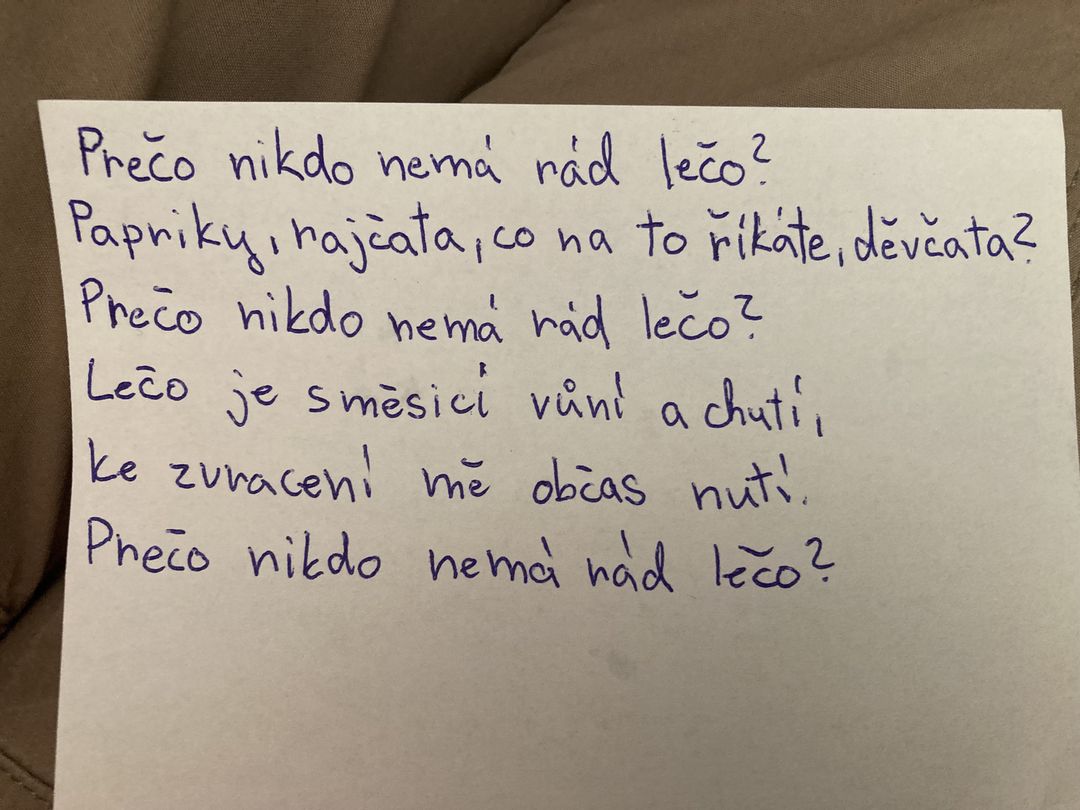 Prečo nikdo nemá rád lečo?
Papriky, rajčata, co na to říkáte, děvčata?
Prečo nikdo nemá rád lečo?
Lečo je směsicí vůní a chutí,
ke zvracení mě občas nutí.
Prečo nikdo nemá rád lečo?